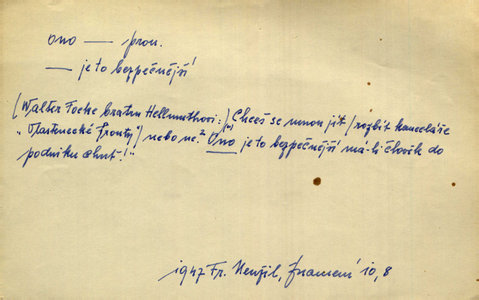 ono — pron.
— je to bezpečnější
(Walter Focke bratru Hellmuthovi:) Chceš se mnou jít /rozbít kanceláře
"Vlastenecké fronty"/ nebo ne? Ono(") je to bezpečnější má-li člověk do
podniku chuť!"
1947 Fr. Neužil, Znamení 10, 8